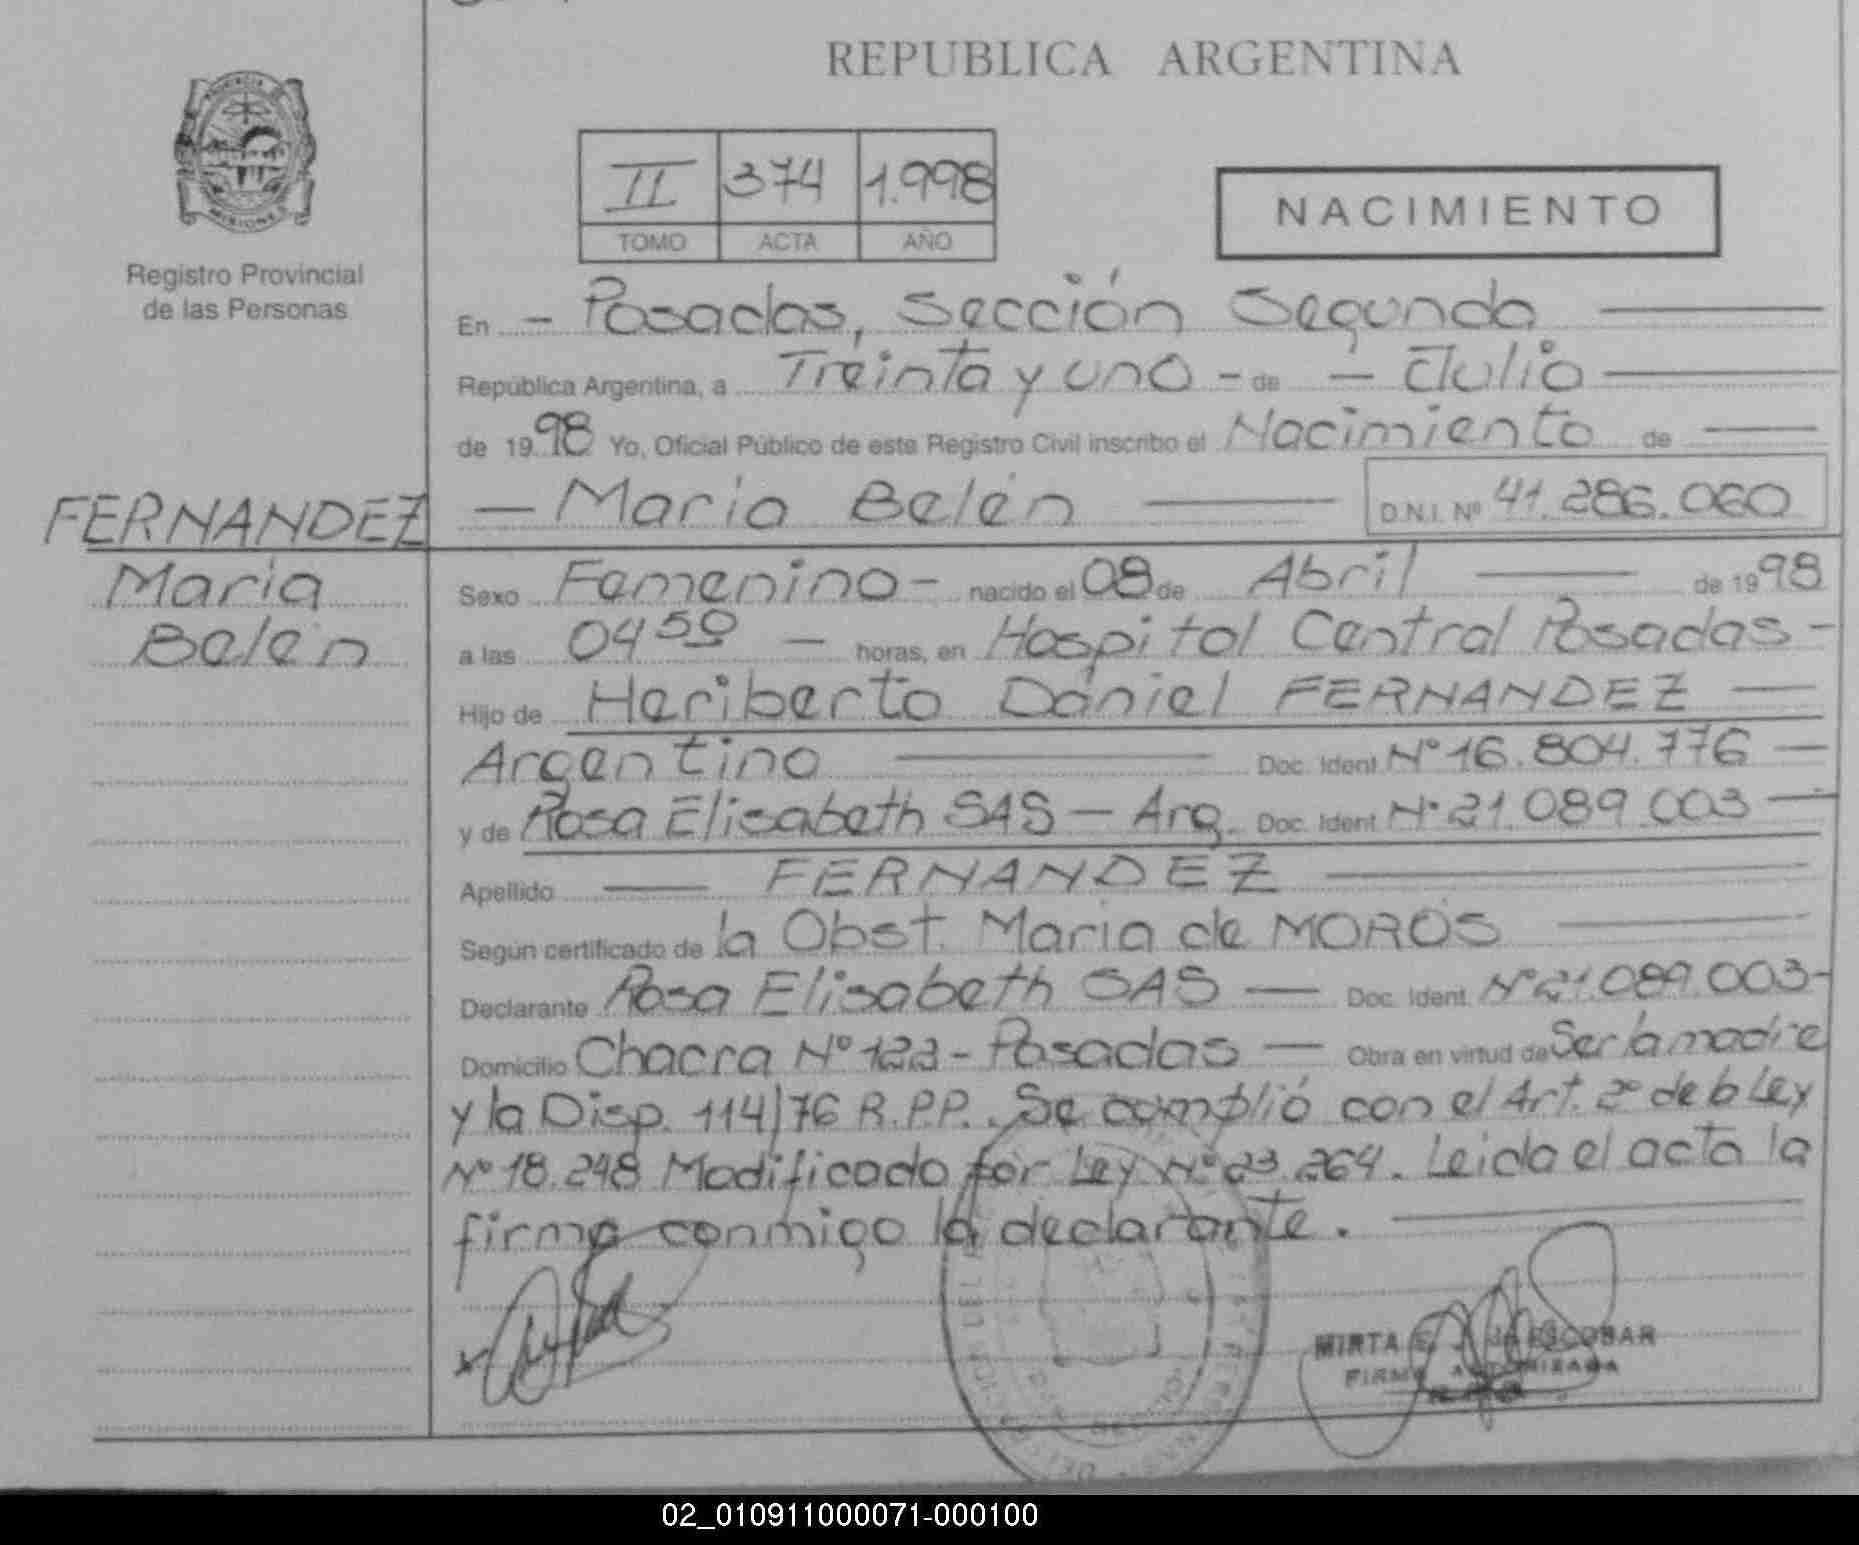 REPUBLICA ARGENTINA
PROVINCIA DE
MISIONES
Registro Provincial
de las Personas
II 374 1.998
TOMO ACTA AÑO
NACIMIENTO
En - Posadas, Sección Segunda
República Argentina, a Treinta y uno - de - Julio
de 1998 Yo, Oficial Público de este Registro Civil inscribo el Nacimiento de
- Maria Belén D.N.I. Nº 41.286.060
FERNANDEZ
Maria
Belén
Sexo Femenino - nacido el 08 de Abril de 1998
a las 04 50 - horas, en Hospital Central Posadas -
Hijo de Heriberto Daniel FERNANDEZ
Argentino Doc. Ident. Nº 16.804.776 -
y de Rosa Elisabeth SAS - Arg. Doc. Ident. Nº 21.089.003
Apellido FERNANDEZ
Según certificado de la Obst. Maria de MOROS
Declarante Rosa Elisabeth SAS - Doc. Ident. Nº 21.089.003-
Domicilio Chacra Nº 122 - Posadas - Obra en virtud de Ser la madre
y la Disp. 114/76 R.P.P.. Se complió con el Art. 2º de la Ley
Nº 18.248 Modificado por Ley Nº 23.264. Leida el acta la
firma conmigo la declarante.
MIRTA ESCOBAR
FIRMA AUTORIZADA
02_010911000071-000100